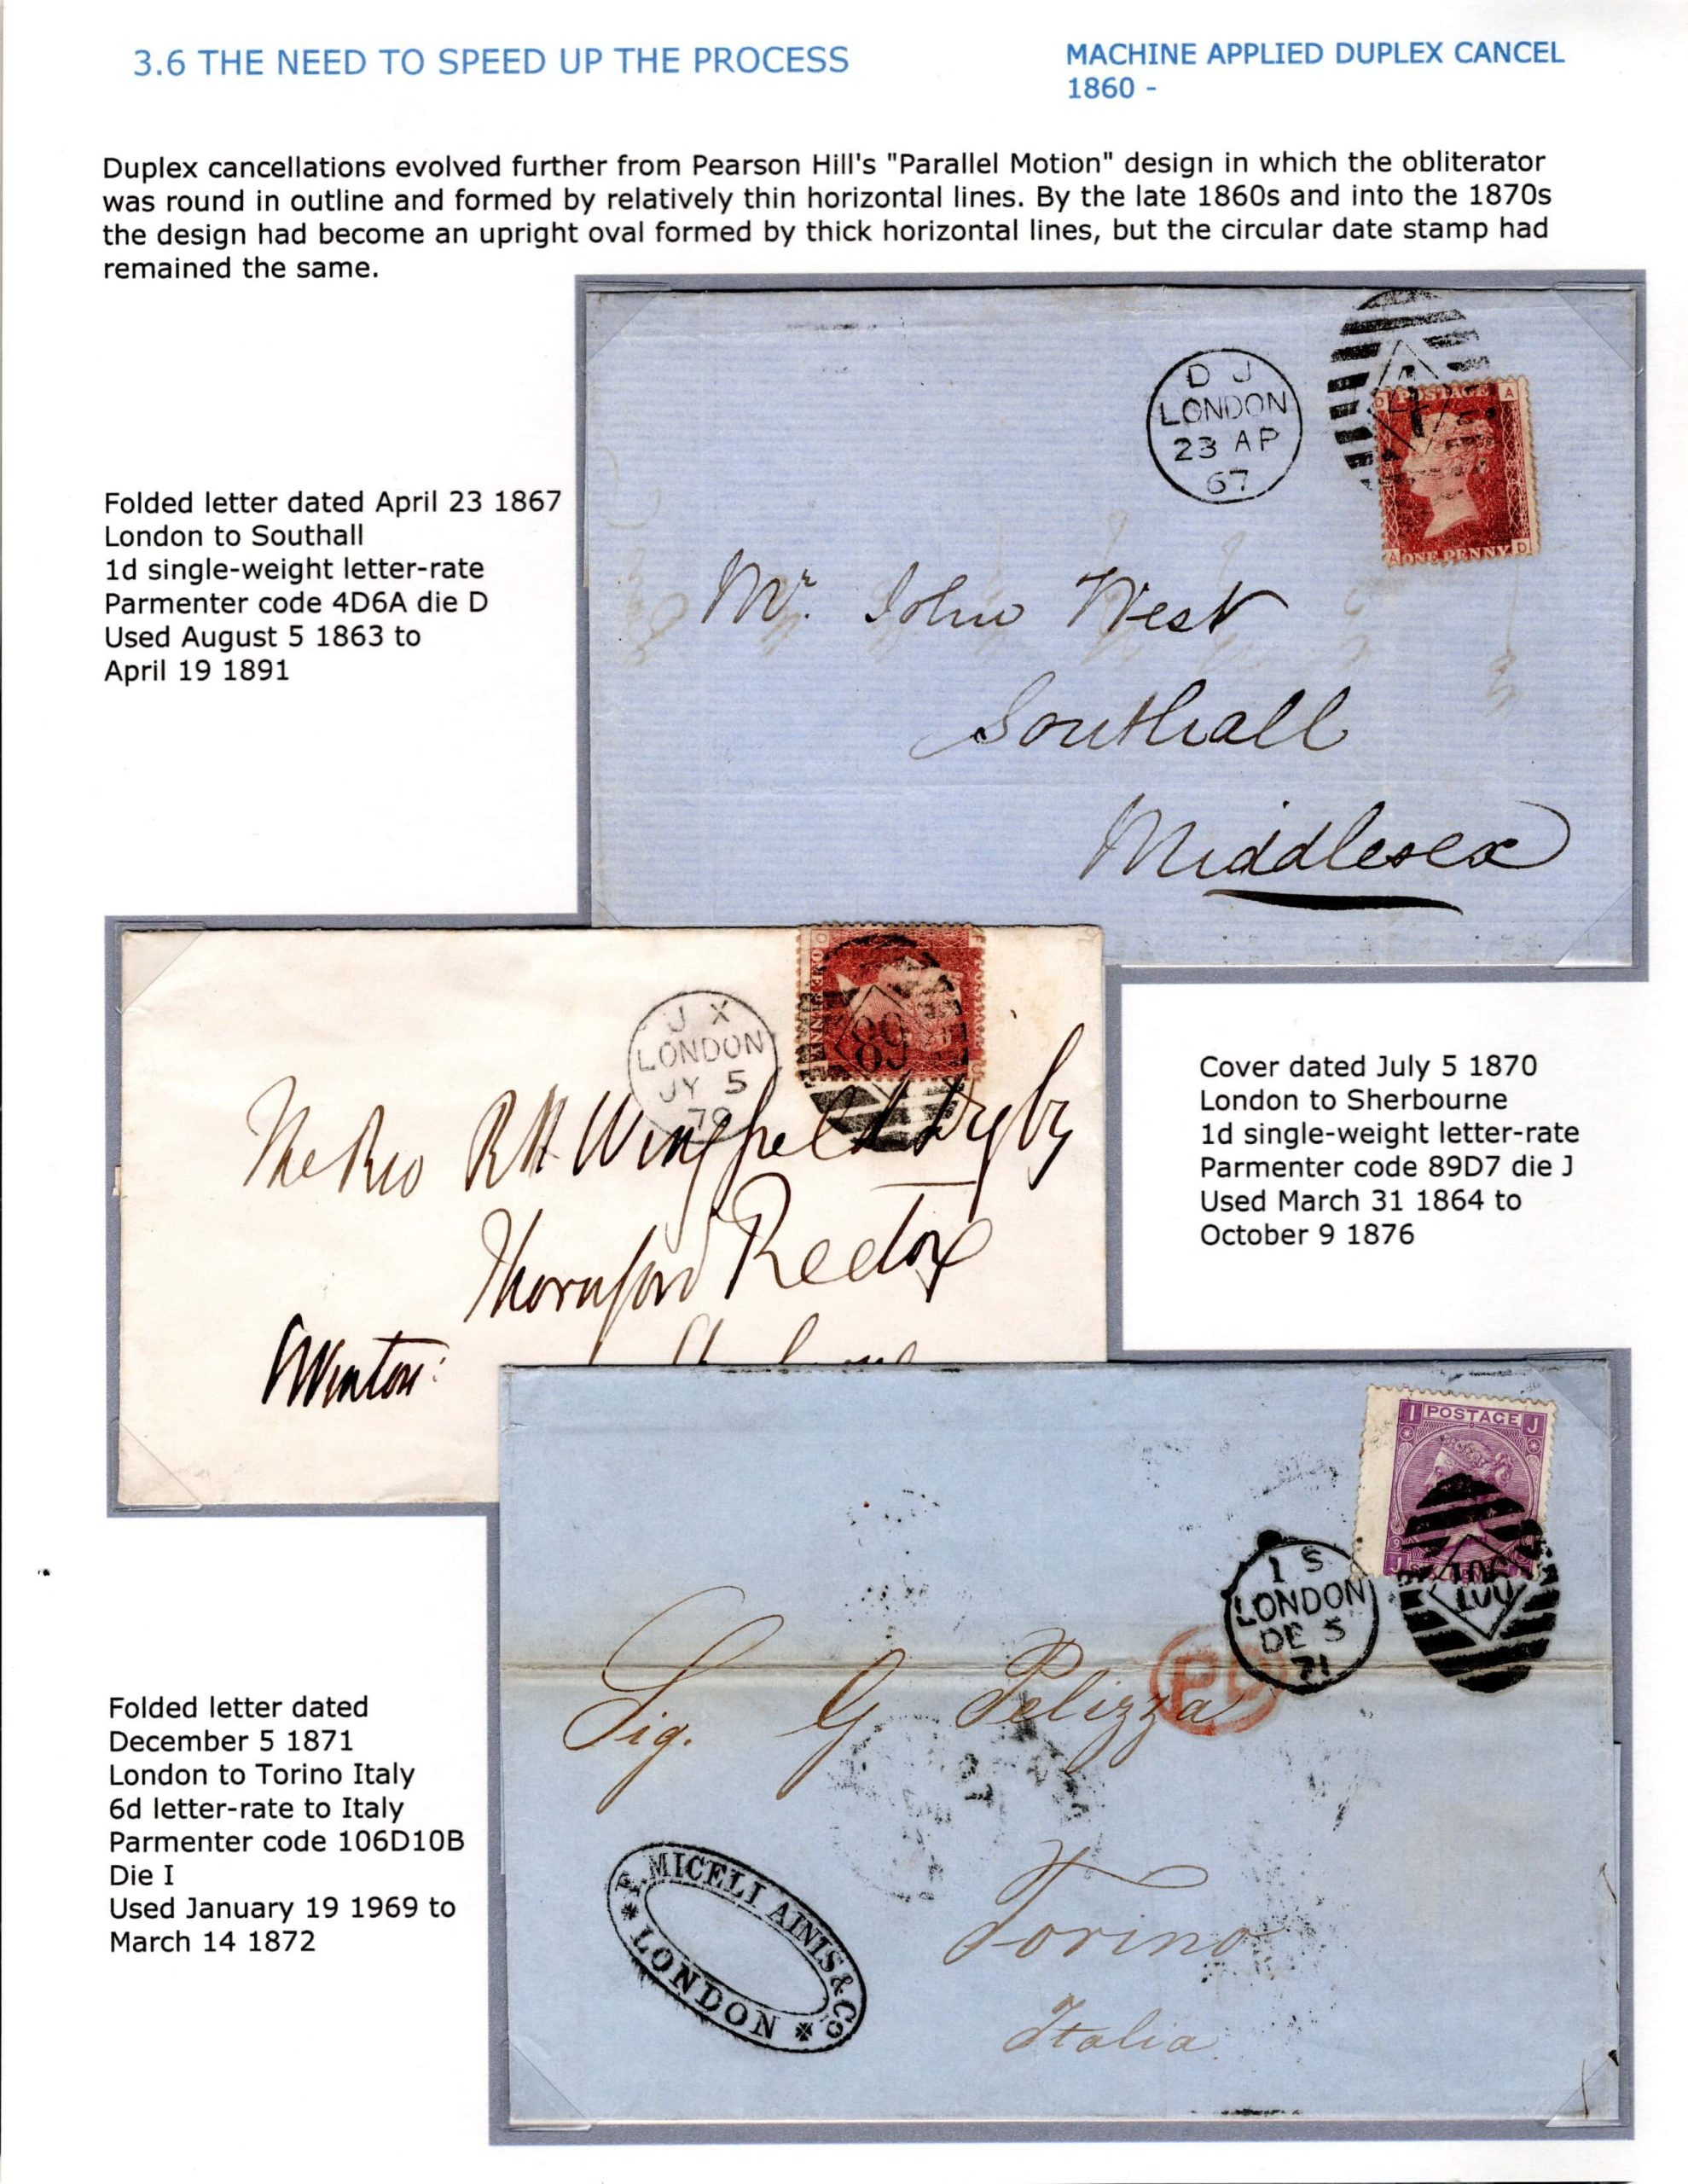 3.6 THE NEED TO SPEED UP THE PROCESS
MACHINE APPLIED DUPLEX CANCEL
1860 -
Duplex cancellations evolved further from Pearson Hill's "Parallel Motion" design in which the obliterator
was round in outline and formed by relatively thin horizontal lines. By the late 1860s and into the 1870s
the design had become an upright oval formed by thick horizontal lines, but the circular date stamp had
remained the same.
D J
LONDON
23 AP
67
4
D POSTAGE A
A ONE PENNY D
Mr. John West
Southall
Middlesex
Folded letter dated April 23 1867
London to Southall
1d single-weight letter-rate
Parmenter code 4D6A die D
Used August 5 1863 to
April 19 1891
J X
LONDON
JY 5
70
89
The Rev R H Wingfield Digby
Thornford Rector
Winton:
Cover dated July 5 1870
London to Sherbourne
1d single-weight letter-rate
Parmenter code 89D7 die J
Used March 31 1864 to
October 9 1876
I POSTAGE J
9
J
I S
LONDON
DE 5
71
106
PD
Sig. G Pelizza
Torino
Italia
F. MICELI AINIS & Co
LONDON
Folded letter dated
December 5 1871
London to Torino Italy
6d letter-rate to Italy
Parmenter code 106D10B
Die I
Used January 19 1969 to
March 14 1872